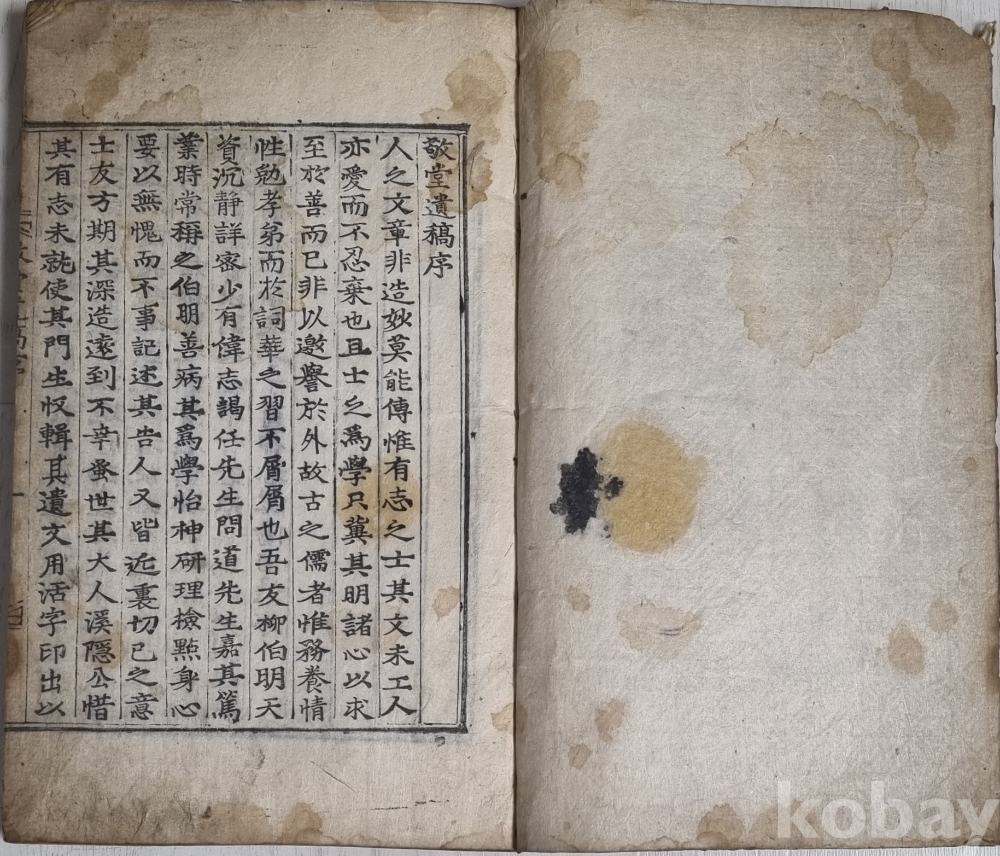 敬堂遺稿序
人之文章非造妙莫能傳惟有志之士其文未工人
亦愛而不忍棄也且士之爲學只冀其明諸心以求
至於善而已非以邀譽於外故古之儒者惟務養情
性勉孝弟而於詞華之習不屑屑也吾友柳伯明天
資沉静詳密少有偉志謁任先生問道先生嘉其篤
業時常稱之伯明善病其爲學怡神研理檢點身心
要以無愧而不事記述其告人又皆近裏切已之意
士友方期其深造遠到不幸蚤世其大人溪隠公惜
其有志未就使其門生収輯其遺文用活字印出以
kobay